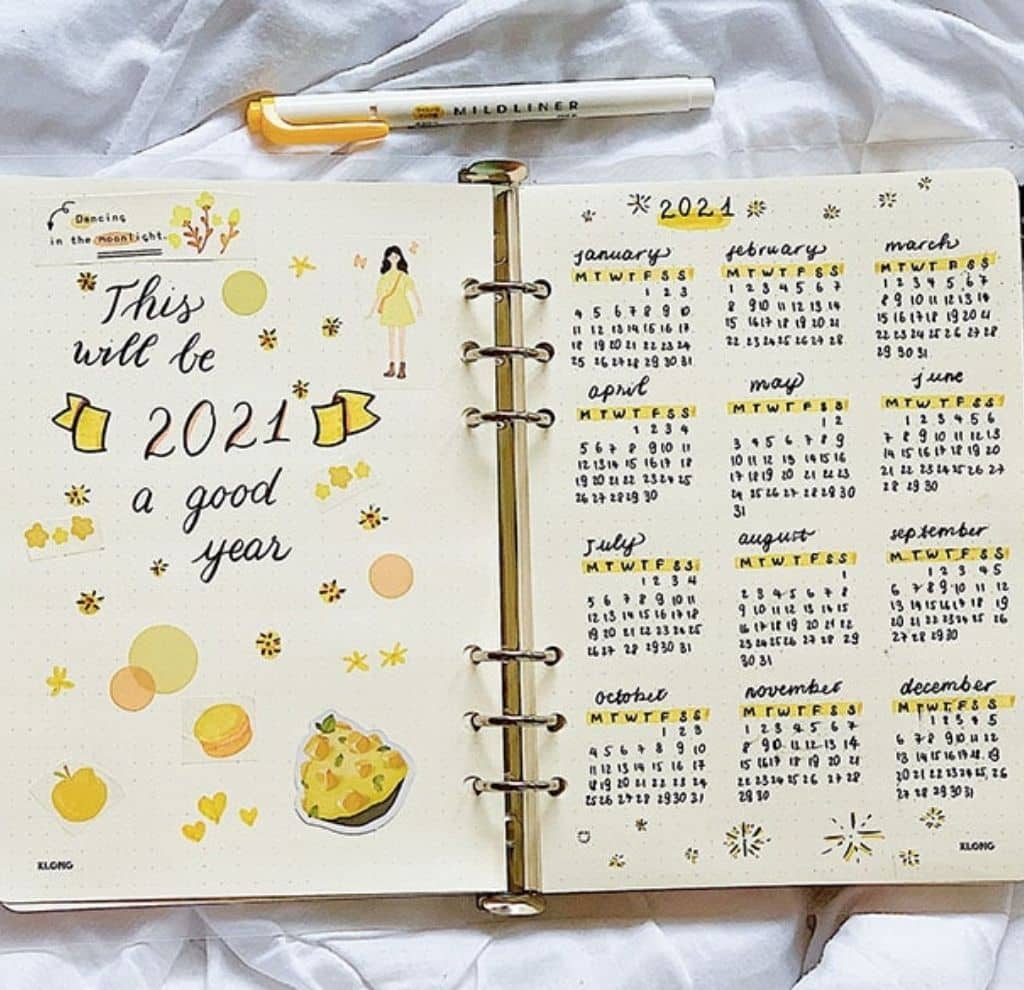 MILDLINER
Dancing
in the moonlight.
This
will be
2021
a good
year
KLONG
2021
january
M T W T F S S
1 2 3
4 5 6 7 8 9 10
11 12 13 14 15 16 17
18 19 20 21 22 23 24
25 26 27 28 29 30 31
february
M T W T F S S
1 2 3 4 5 6 7
8 9 10 11 12 13 14
15 16 17 18 19 20 21
22 23 24 25 26 27 28
march
M T W T F S S
1 2 3 4 5 6 7
8 9 10 11 12 13 14
15 16 17 18 19 20 21
22 23 24 25 26 27 28
29 30 31
april
M T W T F S S
1 2 3 4
5 6 7 8 9 10 11
12 13 14 15 16 17 18
19 20 21 22 23 24 25
26 27 28 29 30
may
M T W T F S S
1 2
3 4 5 6 7 8 9
10 11 12 13 14 15 16
17 18 19 20 21 22 23
24 25 26 27 28 29 30
31
june
M T W T F S S
1 2 3 4 5 6
7 8 9 10 11 12 13
14 15 16 17 18 19 20
21 22 23 24 25 26 27
28 29 30
july
M T W T F S S
1 2 3 4
5 6 7 8 9 10 11
12 13 14 15 16 17 18
19 20 21 22 23 24 25
26 27 28 29 30 31
august
M T W T F S S
1
2 3 4 5 6 7 8
9 10 11 12 13 14 15
16 17 18 19 20 21 22
23 24 25 26 27 28 29
30 31
september
M T W T F S S
1 2 3 4 5
6 7 8 9 10 11 12
13 14 15 16 17 18 19
20 21 22 23 24 25 26
27 28 29 30
october
M T W T F S S
1 2 3
4 5 6 7 8 9 10
11 12 13 14 15 16 17
18 19 20 21 22 23 24
25 26 27 28 29 30 31
november
M T W T F S S
1 2 3 4 5 6 7
8 9 10 11 12 13 14
15 16 17 18 19 20 21
22 23 24 25 26 27 28
29 30
december
M T W T F S S
1 2 3 4 5
6 7 8 9 10 11 12
13 14 15 16 17 18 19
20 21 22 23 24 25 26
27 28 29 30 31
KLONG